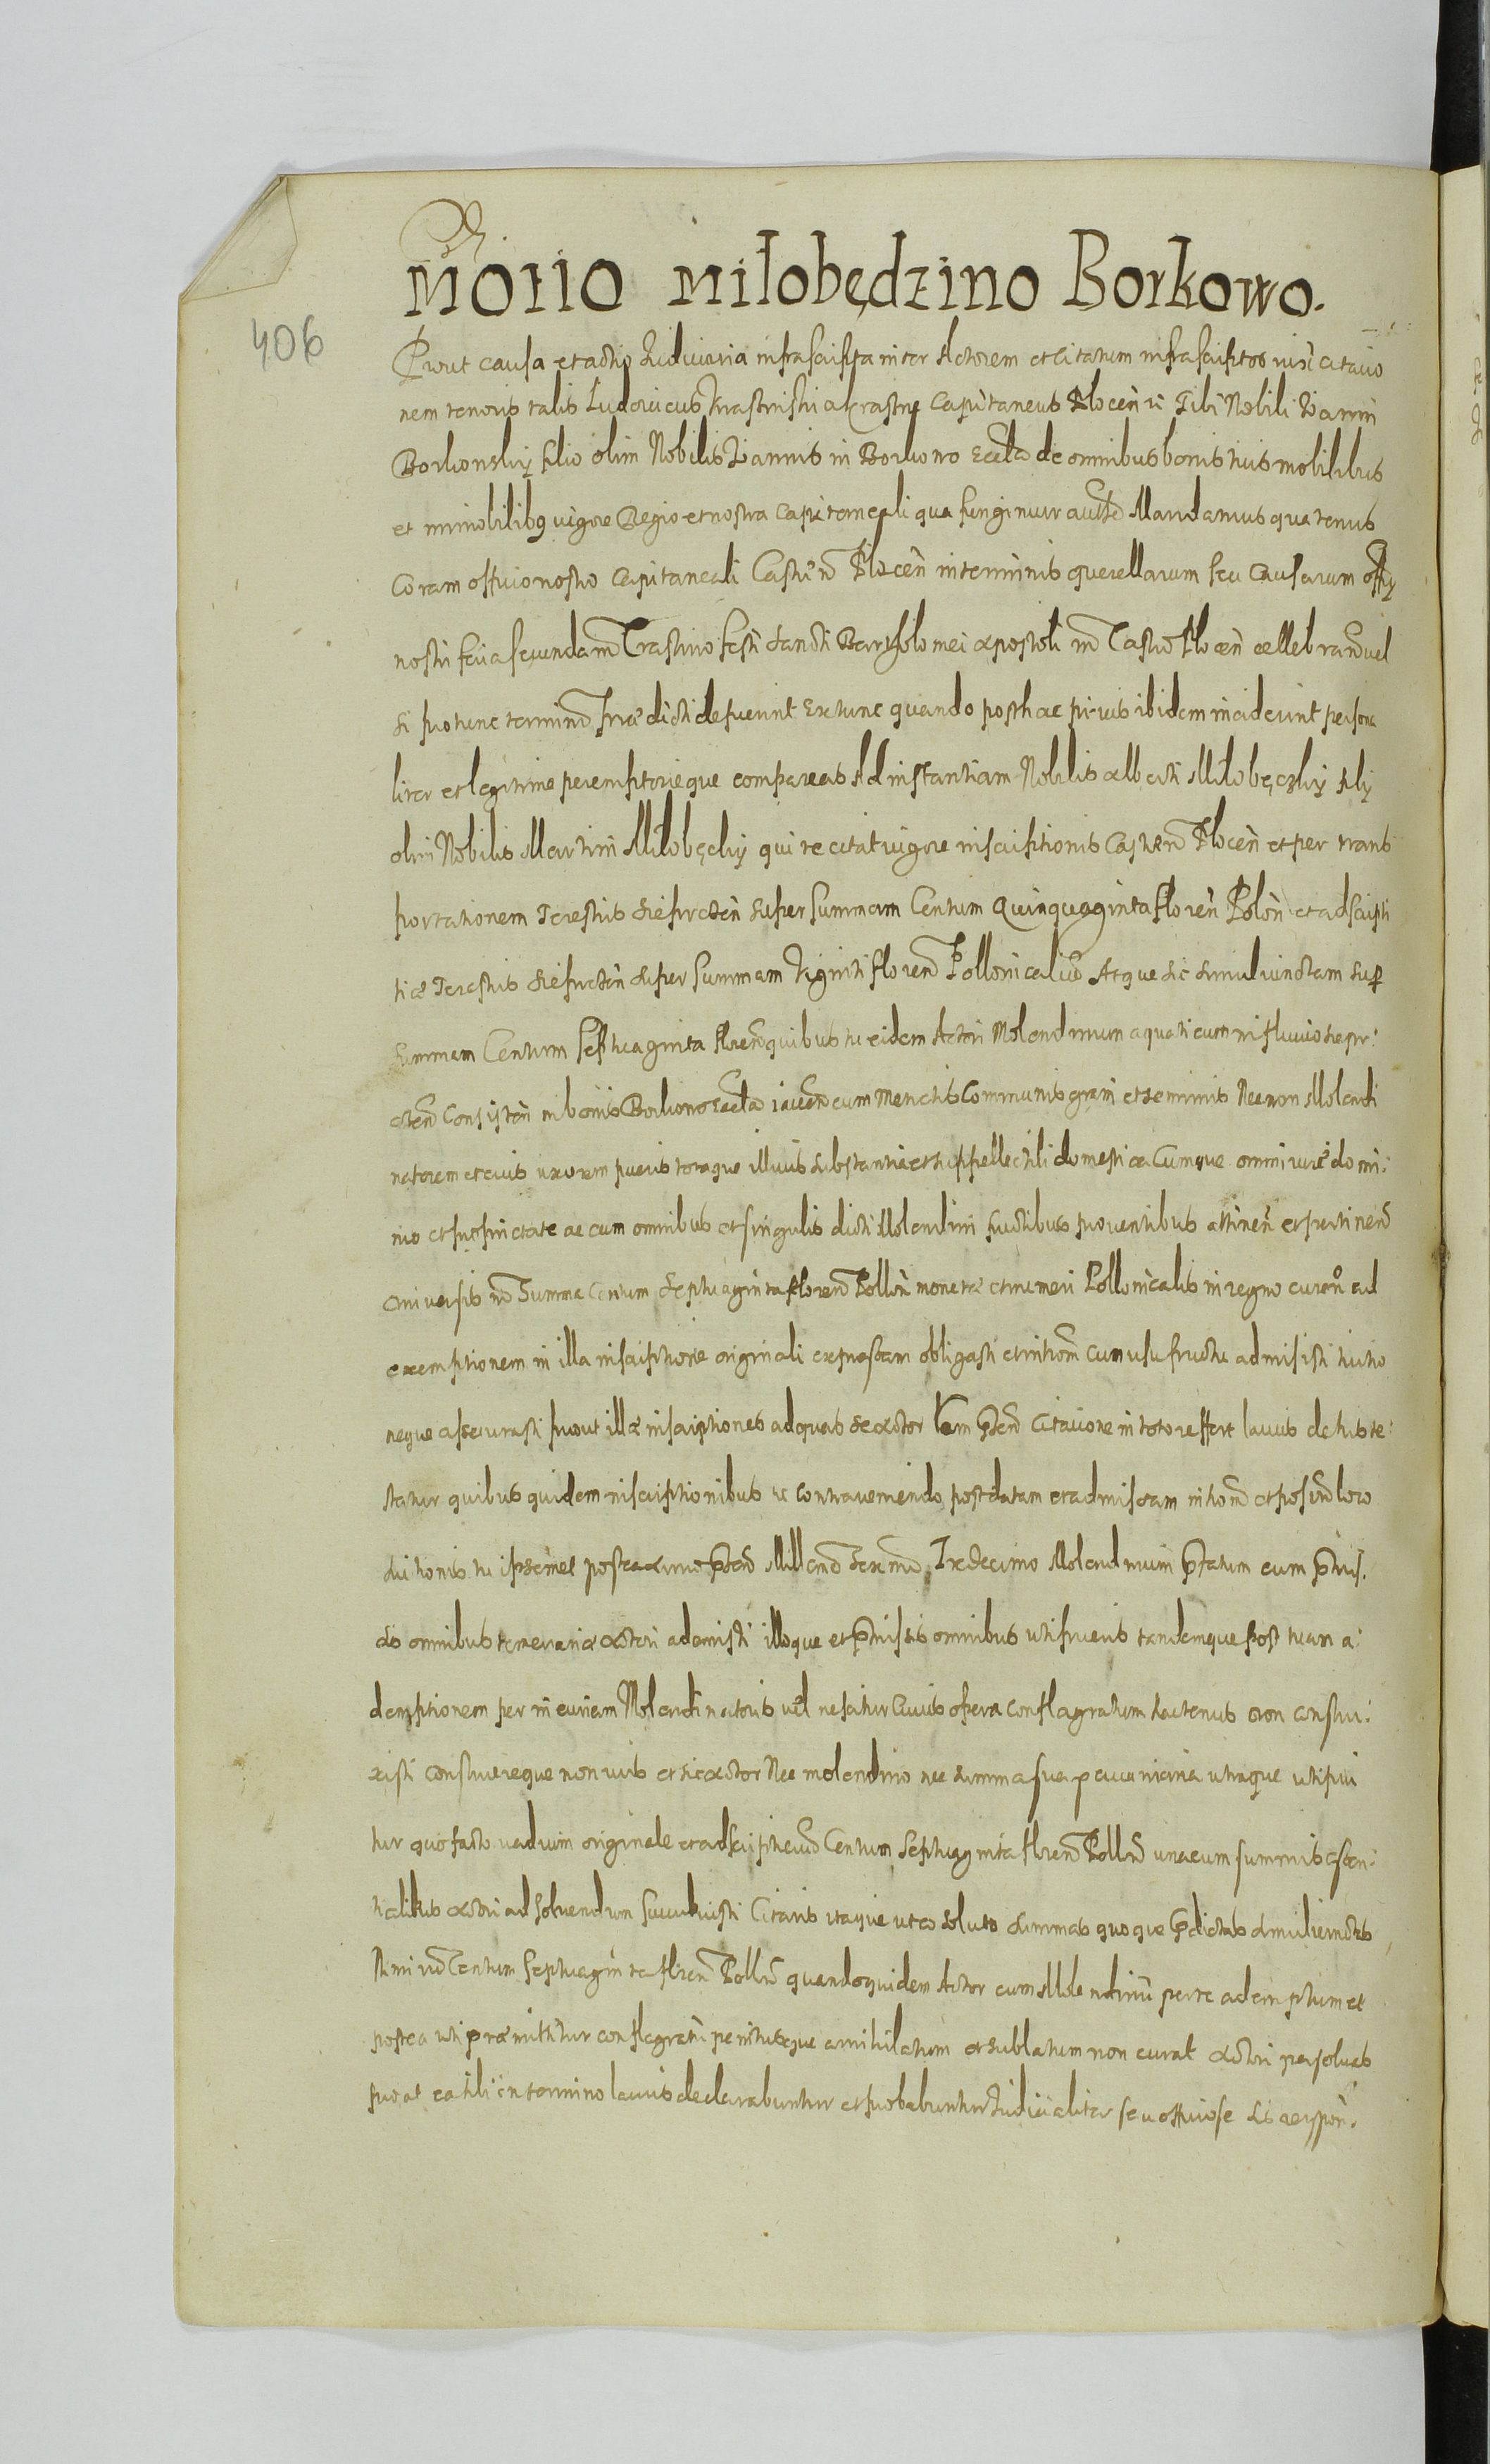 Motio Miłobędzino Borkowo.
406
Prout causa et actio Iudiciaria infrascripta inter Actorem et Citatum infrascriptos iuxta citatio
nem tenoris talis Ludovicus Krasinski a Krasne Capitaneus Plocen Tibi Nobili Ioanni
Borkowsky filio olim Nobilis Ioannis in Borkowo de omnibus bonis tuis mobilibus
et immobilibq vigore Regio et nostra Capitaneali qua fungimur Mandamus quatenus
Coram officio nostro Capitaneali Castren Plocen in terminis querellarum seu Causarum offy
nostri feria secunda in Crastino festi Sancti Bartholomei apostoli in Castro Plocen cellebrand vel
si pro tunc termini præ dicti defuerint Ex tunc quando post hac ibidem inciderint persona
liter et legitime peremptorieque compareas Ad instantiam Nobilis alberti Miłobęczky fily
olim Nobilis Martini Miłobęcky qui te citat vigore inscriptionis Castren Plocen et per trans
portationem Terestris super Summam Centum Quinquaginta floren Polon et adscripti
tiæ Terestris super Summam Viginti floren Pollonicaliu Atque sic simul iunctam sup
summam Centum Septuaginta floren quibus tu eidem Actori Molendinum aquaticum in fluvio
Consisten in bonis Borkowo cum Mensuris Communis grani et seminis Necnon Molendi
natorem et eius uxorem pueris totaque illius substantia et suppellectili domestica Cumque omni iure do mi:
nio et proprietate ac cum omnibus et singulis dicti Molendini fructibus proventibus attinen et pertinen
universis in Summa Centum Septuaginta floren Pollon monetæ et numeri Pollonicalis in regno curen ad
exemptionem in illa inscriptione originali expressam obligasti cum usu fructu admisisti
neque assecurasti prout illæ inscriptiones ad quas se actor Citatione in toto reffert latius de his te:
statur quibus quidem inscriptionibus contraveniendo post datam et admissam loco
tu ipsemet postea Millen Sexcen Tredecimo Molendinum ptatum cum pmis.
sis omnibus temerarie actori ademisti illoque et pmissis omnibus uti frueris tandemque post tuam a:
demptionem per incuriam Molendinatoris vel nescitur Cuius opera conflagratum hactenus non constru:
xisti construereque non vis et sic actor Nec molendino nec summa sua pecuniaria utraque uti frui
tur quo facto vadium originale et Centum Septuaginta floren Pollon una cum summis
actori ad solvendum succubuisti Citaris itaque ut eo soluto summas quoque pdictas
Centum Septuaginta floren Pollon quandoquidem Actor eum Molendinu per te ademptum et
postea uti præmittitur conflagratu penitusque annihilatum et sublatum non curat actori persolvas
prout ea tibi in termino latius declarabuntur et probabuntur Iudicialiter seu officiose sis respon.